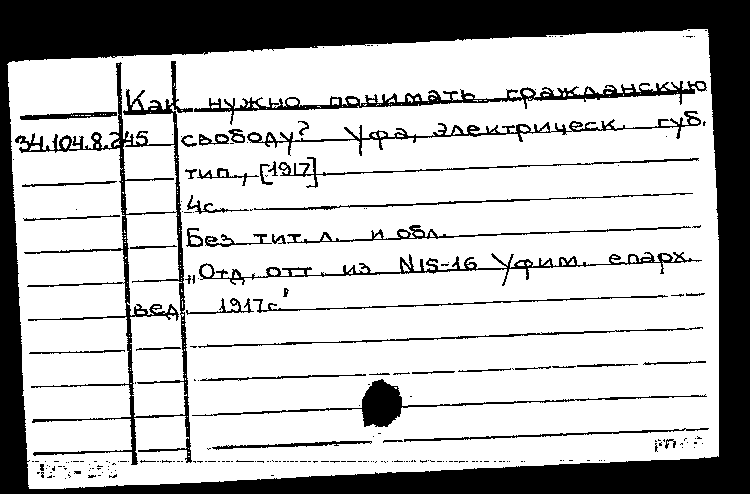 Как нужно понимать гражданскую
34.104.8.245 свободу? Уфа, электрическ. губ.
тип., [1917].
4с.
Без тит. л. и обл.
„Отд. отт. из N15-16 Уфим. епарх.
вед. 1917г."